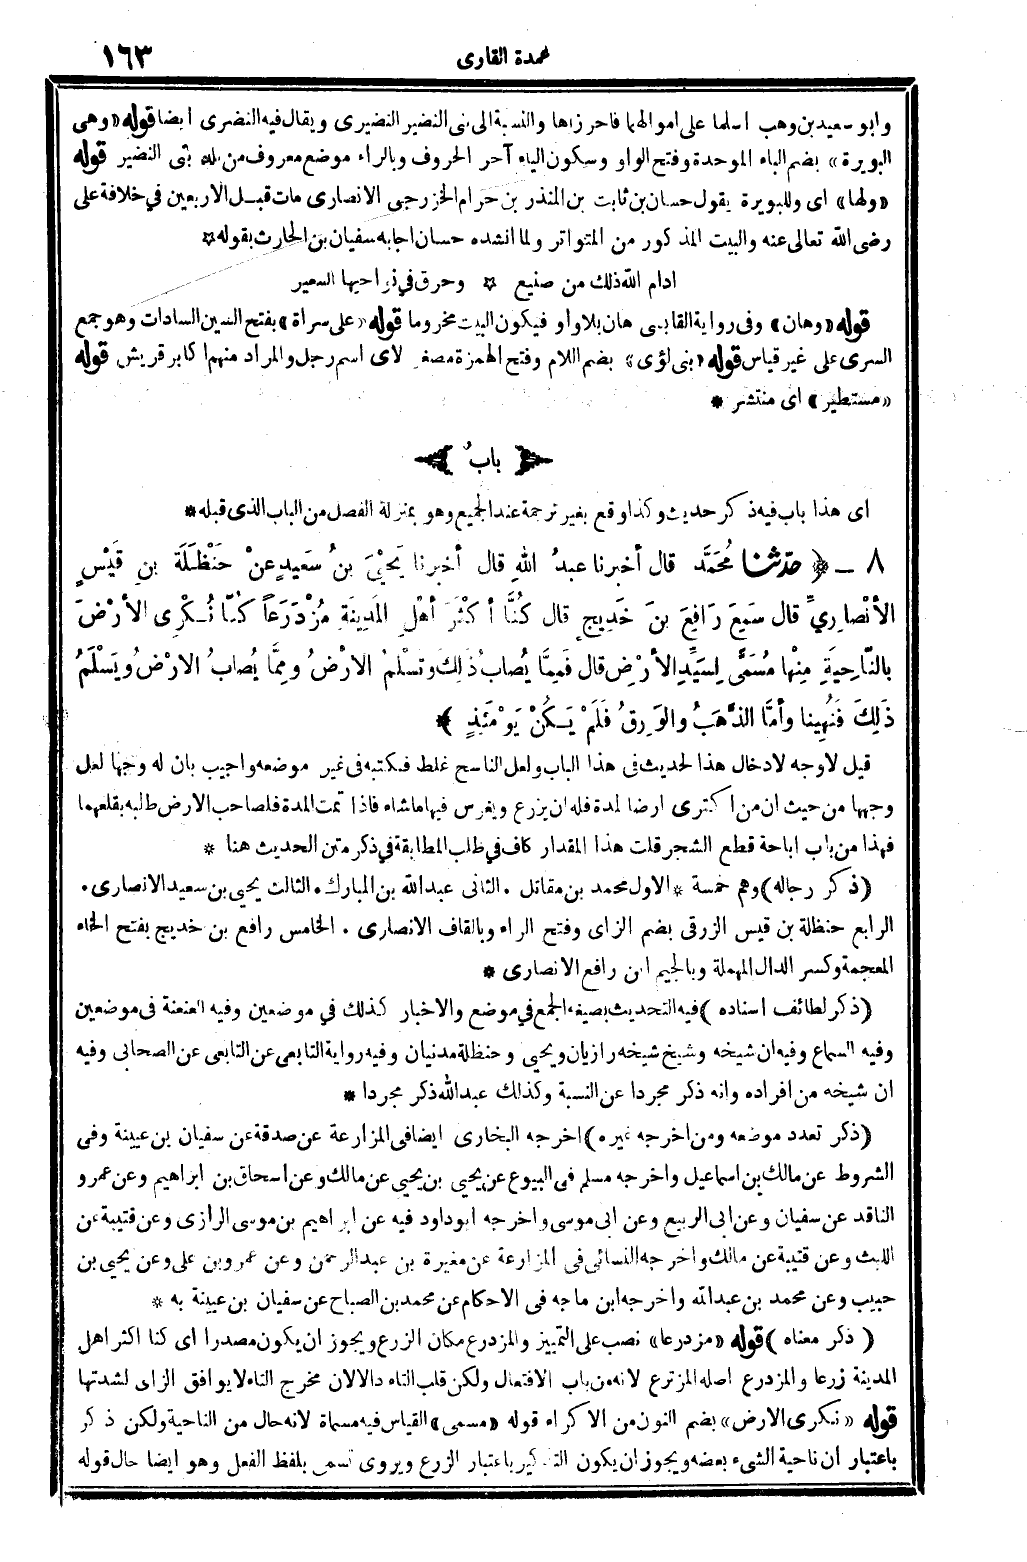 عمدة القاري ١٦٣
وابو سعيد بن وهب اسلما على اموالهما فاحرزاها والنسبة الى بنى النضير النضيرى ويقال فيه النضرى ايضا قوله «وهى
البويرة» بضم الباء الموحدة وفتح الواو وسكون الياء آخر الحروف وبالراء موضع معروف من بلد بنى النضير قوله
«ولها» اى وللبويرة يقول حسان بن ثابت بن المنذر بن حرام الخزرجى الانصارى مات قبل الاربعين في خلافة على
رضى الله تعالى عنه والبيت المذكور من المتواتر ولما انشده حسان اجابه سفيان بن الحارث بقوله ☆
ادام الله ذلك من صنيع ☆ وحرق في نواحيها السعير
قوله «وهان» وفى رواية القابسى هان بلا واو فيكون البيت مخروما قوله «على سراة» بفتح السين السادات وهو جمع
السرى على غير قياس قوله «بنى لؤى» بضم اللام وفتح الهمزة مصغر لاى اسم رجل والمراد منهم اكابر قريش قوله
«مستطير» اى منتشر *
باب
اى هذا باب فيه ذكر حديث وكذا وقع بغير ترجمة عند الجميع وهو بمنزلة الفصل من الباب الذى قبله *
٨ ـ ﴿ حَدَّثَنَا مُحَمَّد قال أخبرنا عبدُ اللهِ قال أخبرنا يَحْيَى بنُ سَعِيدٍ عنْ حَنْظَلَةَ بنِ قَيْسٍ
الأنْصارِيِّ قال سَمِعَ رَافِعَ بنَ خَدِيجٍ قال كُنَّا أكْثَرَ أهْلِ المَدِينَةِ مُزْدَرَعاً كُنَّا نُكْرِى الأرْضَ
بالنَّاحِيَةِ مِنْها مُسَمًّى لِسَيِّدِ الأرْضِ قال فَمِمَّا يُصابُ ذلِكَ وتَسْلَمُ الارْضُ ومِمَّا يُصابُ الارْضُ ويَسْلَمُ
ذَلِكَ فَنُهِينا وأمَّا الذَّهَبُ والوَرِقُ فَلَمْ يَكُنْ يَوْمَئِذٍ ﴾
قيل لا وجه لادخال هذا الحديث فى هذا الباب ولعل الناسخ غلط فكتبه فى غير موضعه واجيب بان له وجها لعل
وجهها من حيث ان من اكترى ارضا لمدة فله ان يزرع ويغرس فيها ماشاء فاذا تمت المدة فلصاحب الارض طلبه بقلعهما
فهذا من باب اباحة قطع الشجر قلت هذا المقدار كاف في طلب المطابقة في ذكر متن الحديث هنا *
(ذكر رجاله) وهم خمسة * الاول محمد بن مقاتل . الثانى عبدالله بن المبارك . الثالث يحيى بن سعيد الانصارى .
الرابع حنظلة بن قيس الزرقى بضم الزاى وفتح الراء وبالقاف الانصارى . الخامس رافع بن خديج بفتح الخاء
المعجمة وكسر الدال المهملة وبالجيم ابن رافع الانصارى *
(ذكر لطائف اسناده) فيه التحديث بصيغة الجمع في موضع والاخبار كذلك في موضعين وفيه العنعنة فى موضعين
وفيه السماع وفيه ان شيخه وشيخ شيخه رازيان ويحيى وحنظلة مدنيان وفيه رواية التابعى عن التابعى عن الصحابى وفيه
ان شيخه من افراده وانه ذكر مجردا عن النسبة وكذلك عبدالله ذكر مجردا *
(ذكر تعدد موضعه ومن اخرجه غيره) اخرجه البخارى ايضا فى المزارعة عن صدقة عن سفيان بن عيينة وفى
الشروط عن مالك بن اسماعيل واخرجه مسلم فى البيوع عن يحيى بن يحيى عن مالك وعن اسحاق بن ابراهيم وعن عمرو
الناقد عن سفيان وعن ابى الربيع وعن ابى موسى واخرجه ابو داود فيه عن ابراهيم بن موسى الرازى وعن قتيبة عن
الليث وعن قتيبة عن مالك واخرجه النسائى فى المزارعة عن مغيرة بن عبدالرحمن وعن عمرو بن على وعن يحيى بن
حبيب وعن محمد بن عبدالله واخرجه ابن ماجه فى الاحكام عن محمد بن الصباح عن سفيان بن عيينة به *
(ذكر معناه) قوله «مزدرعا» نصب على التمييز والمزدرع مكان الزرع ويجوز ان يكون مصدرا اى كنا اكثر اهل
المدينة زرعا والمزدرع اصله المزترع لانه من باب الافتعال ولكن قلب التاء دالا لان مخرج التاء لا يوافق الزاى لشدتها
قوله «نكرى الارض» بضم النون من الاكراء قوله «مسمى» القياس فيه مسماة لانه حال من الناحية ولكن ذكر
باعتبار ان ناحية الشىء بعضه ويجوز ان يكون التذكير باعتبار الزرع ويروى تسمى بلفظ الفعل وهو ايضا حال قوله